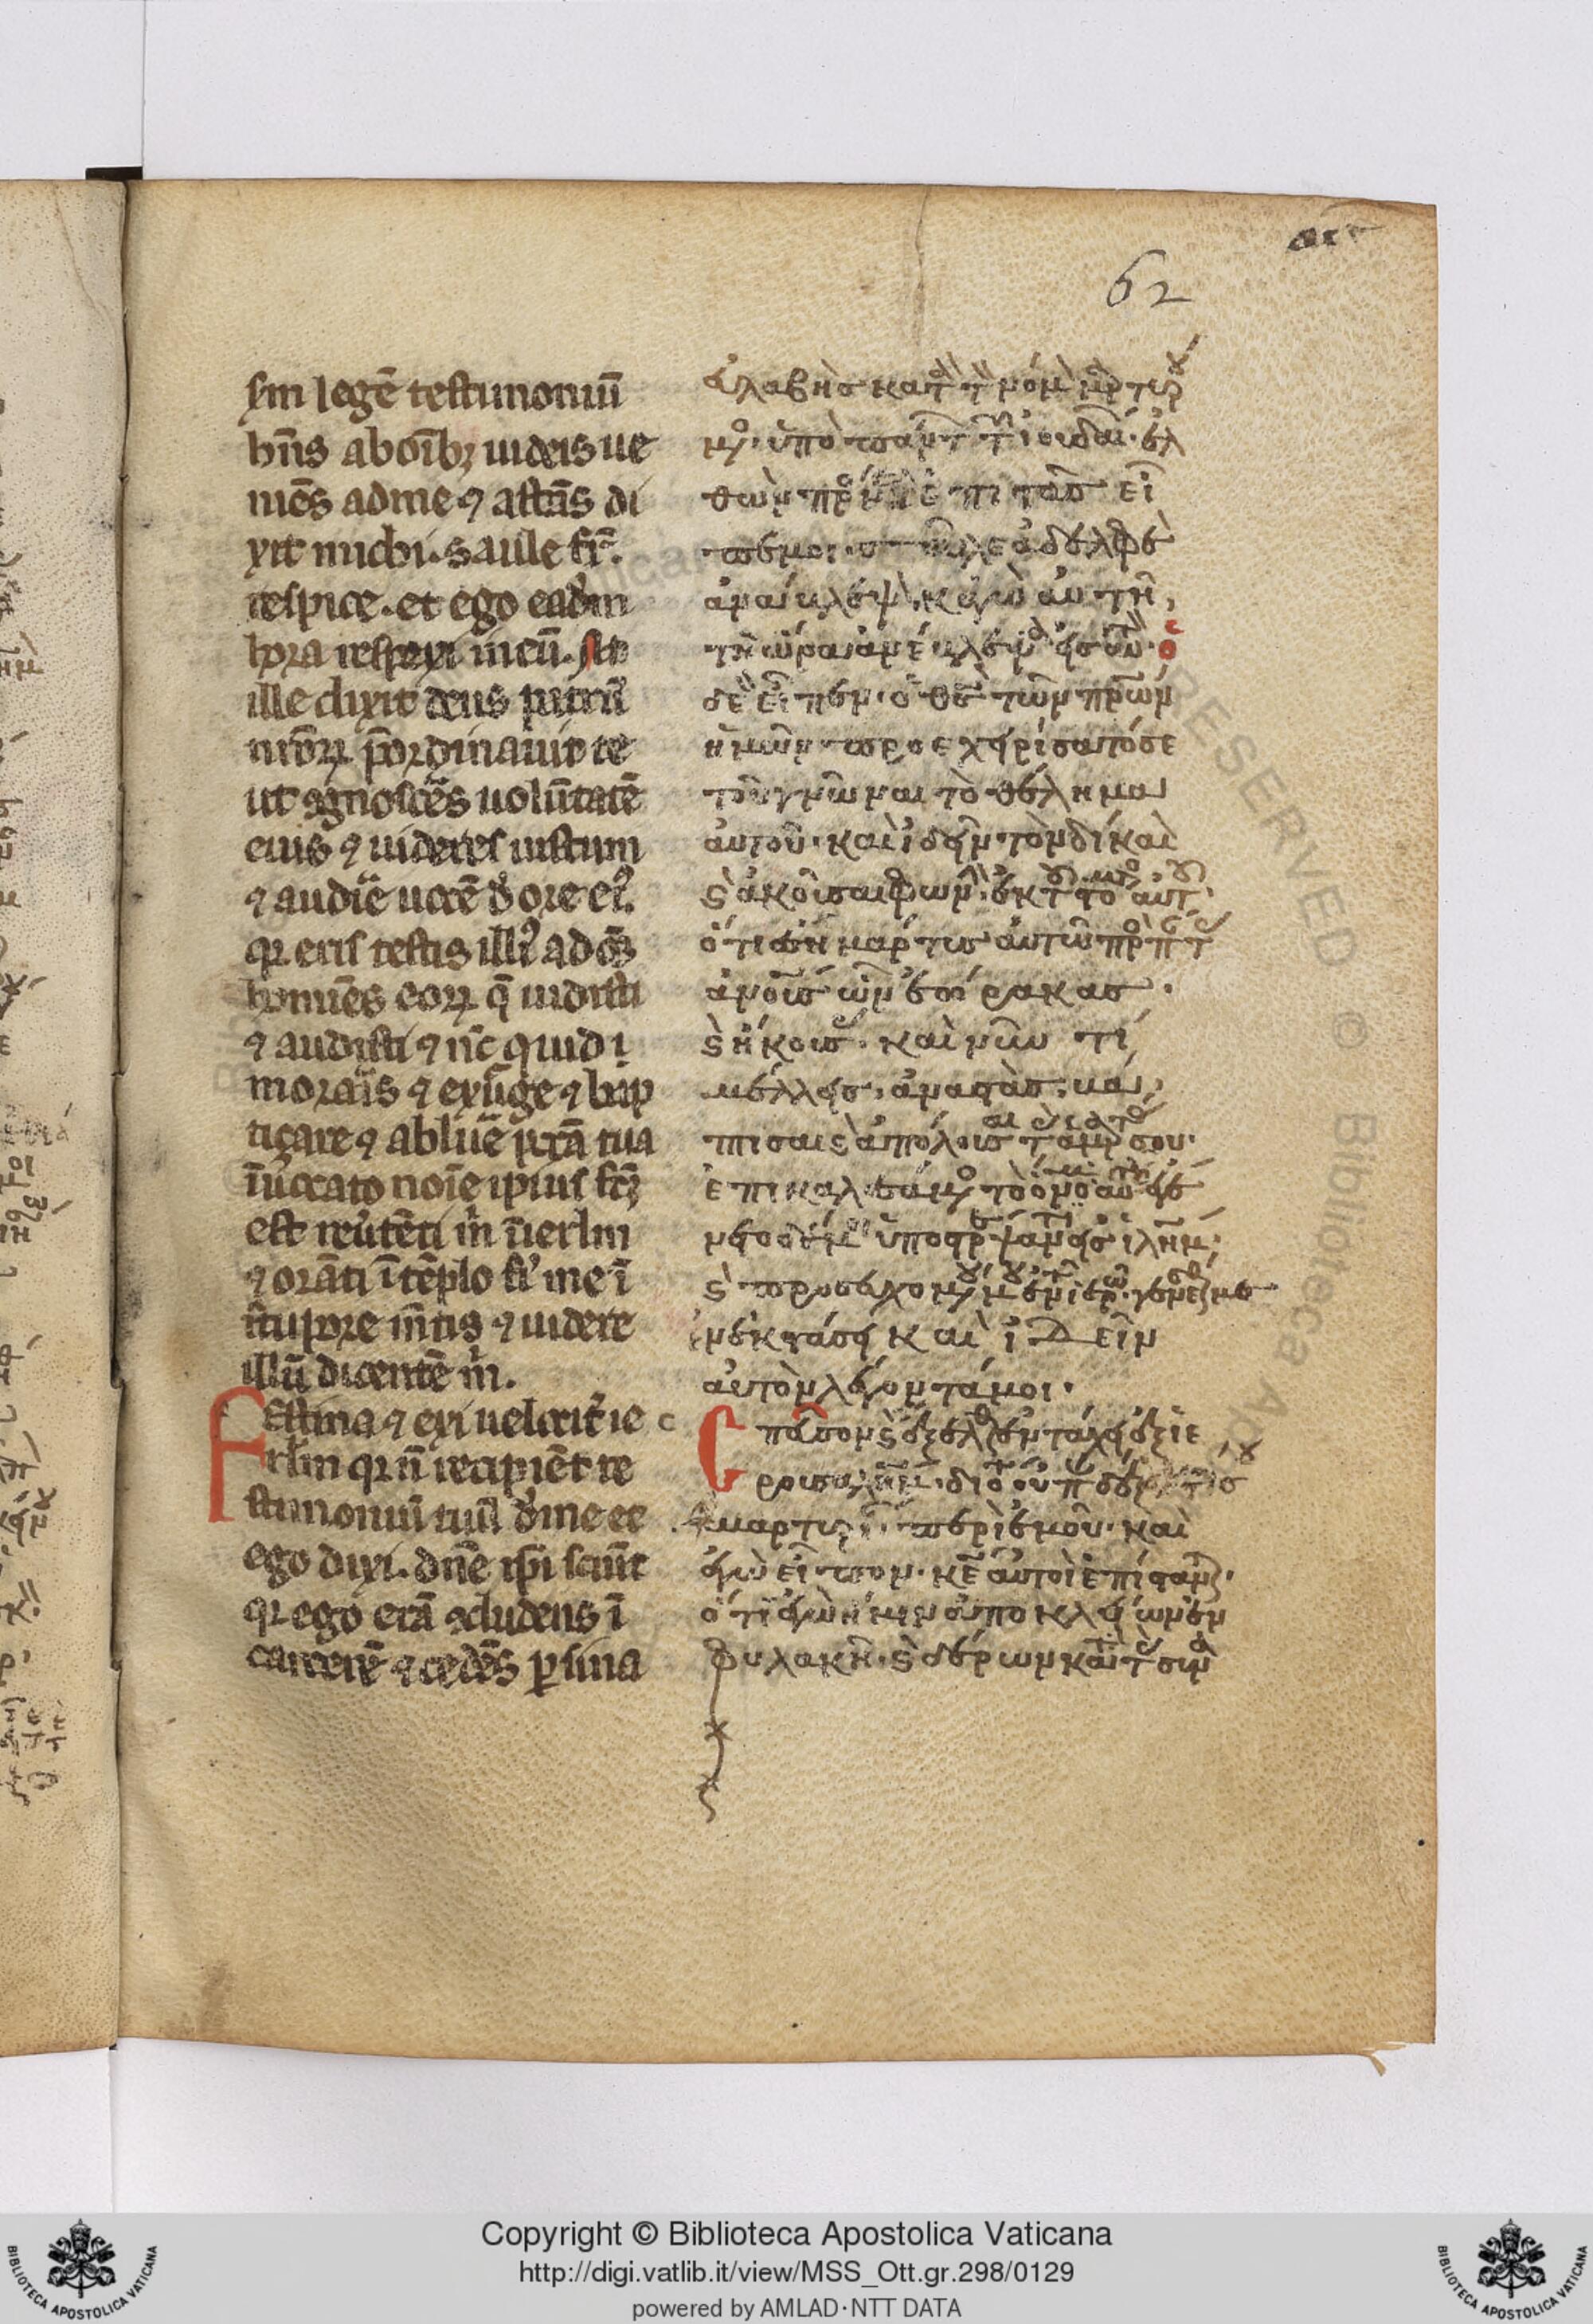 62
sm legē testimoniū
hn̄s ab oīb; iudeis ue
niēs ad me ⁊ astās di
xit michi. saule fr̄.
respice. et ego eadem
hora respexi in eū. At
ille dixit deus patrū
nr̄oꝝ p̄ordinauit te
ut agnoscēs uolūtatē
eius ⁊ uideres iustum
⁊ audire uocē de ore ei᷒.
qr eris testis illi᷒ ad oēs
homīes eoꝝ q̄ uidisti
⁊ audisti ⁊ nc̄ quid
moraīs ⁊ exurge ⁊ bap
tiçare ⁊ ablue pctā tua
īuocato noīe ipius fcm̄
est reūtēti m̄ ī ierlm
⁊ orāti ī tēplo fi᷒ me ī
stupore mētis ⁊ uidere
illū dicentē m̄.
Festina ⁊ exi uelocit᷒ ie
rlm qr n̄ recipiēt te
stimoniū tuū de me et
ego dixi. dn̄e ipi sciūt
qr ego erā ᴐcludens ī
carcerē ⁊ cedēs ꝑ sina
ἐυλαβὴσ κατὰ τὸν νόμον μαρτυρού
μενο. ὑπὸ παντ τῶν ἰουδαί. ἐλ
θὼν πρός με ἐπιτὰσ εἶ
πέμοι. σαῦλε ἀδελφὲ
ἀνάβλεψον. κἀγὼ ἀυτῆ
τῆ ὥρα ἀνέβλεψα εἰσ ἀυτόν. ὁ
δὲ εἶπεν. ὁ θσ τῶν πρων
ἡμῶν προεχειρίσατό σε
τοῦ γνῶναι τὸ θέλημα
ἀυτοῦ. καὶ ἰδεῖν τὸν δίκαι
ϛ ἀκοῦσαι φωνὴν ἐκ τοῦ στό ἀυτοῦ.
ὅτι ἔση μάρτυσ ἀυτῶ πρὸ πτ
ἀνουσ ὧν ἑώρακασ.
ϛ ἤκουσ. καὶ νῦν τί
μέλλεισ. ἀναστὰσ. βά
πτισαι ϛ ἀπόλουσαι τὰσ ἁμ σου.
ἐπικαλεσάμενο τὸ ὄνομα ἀυτοῦ ἐγέ
νετο δέ μοι ὑποστρέψαντι εἰσ ἰλημ.
ϛ προσευχομένου μου ἐν τῶ ἱερῶ. γενέσθαι με
ἐν ἐκστάσει καὶ ἰδεῖν
ἀυτὸν λέγοντά μοι.
Σπεῦσον ϛ ἔξελθε ἐν τάχει ἐξ ἱε
ρουσαλημ. διότι ὀυ παραδέξονται σου
μαρτυρίαν περὶ ἐμοῦ. καὶ
ἐγὼ εἶπον. κε ἀυτοὶ ἐπίστανται.
ὅτι ἐγὼ ἤμην ἀποκλείων ἐν
φυλακῆ. ϛ δέρων κατὰ τὰσ συν
Copyright © Biblioteca Apostolica Vaticana
http://digi.vatlib.it/view/MSS_Ott.gr.298/0129
powered by AMLAD·NTT DATA